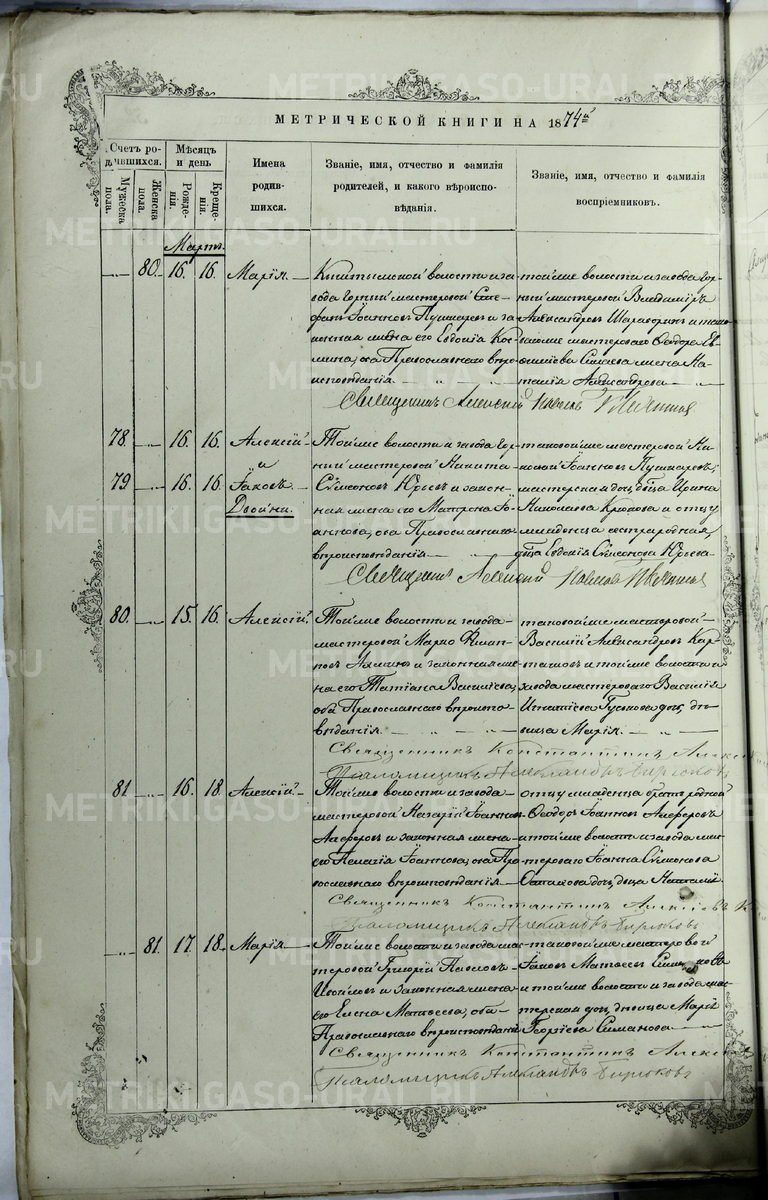 МЕТРИЧЕСКОЙ КНИГИ НА 1874й
Счетъ родившихся.
Мужеска пола.
Женска пола.
Мѣсяцъ и день
Рожденія.
Крещенія.
Имена родившихся.
Званіе, имя, отчество и фамилія родителей, и какого вѣроисповѣданія.
Званіе, имя, отчество и фамилія воспріемниковъ.
Мартъ.
80. 16. 16. Марія.
Кыштымской волости и за-
вода горный мастеровой Сте-
фанъ Іоанновъ Пушкаревъ и за-
конная жена его Евдокія Кос-
мина, оба Православнаго вѣро-
исповѣданія
той же волости и завода гор-
ный мастеровой Владиміръ
Александровъ и тако-
ваго же мастероваго Ѳеодора Ев-
ѳиміева жена На-
талія Александрова
Священникъ Алексій
78 16. 16. Алексій
и
79 16. 16. Іаковъ.
Двойни.
Той же волости и завода гор-
ный мастеровой Никита
Сѵмеоновъ Юрьевъ и закон-
ная жена его Матрона Іо-
аннова, оба Православнаго
вѣроисповѣданія
таковой же мастеровой Ни-
Іоанновъ Пушкаревъ;
мастерская дочь, дѣвица Ирина
Николаева и отцу
младенца сестра родная,
дѣвица Евдокія Сѵмеонова Юрьева
Священникъ Алексій
80. 15. 16. Алексій.
Той же волости и завода
мастеровой Марко Филип-
повъ и законная же-
на его Татіана Василіева,
оба Православнаго вѣроиспо-
вѣданія
таковой же мастеровой
Василій Александровъ Кар-
и той же волости и
завода мастероваго Василія
Игнатіева Гуськова дочь, дѣ-
вица Марія.
Священникъ Константинъ
Псаломщикъ Александръ Бирюковъ
81 16. 18. Алексій.
Той же волости и завода
мастеровой Назарій Іоанновъ
Алферовъ и законная жена
его Пелагія Іоаннова, оба Пра-
вославнаго вѣроисповѣданія
отцу младенца братъ родной
Ѳеодоръ Іоанновъ Алферовъ
и той же волости и завода мас-
тероваго Іоанна Сѵмеонова
дочь, дѣвица Наталія.
Священникъ Константинъ
Псаломщикъ Александръ Бирюковъ
81. 17. 18. Марія
Той же волости и завода мас-
теровой Григорій Павловъ
и законная жена
его Елена Матвѣева, оба
Православнаго вѣроисповѣданія
таковой же мастеровой
Іаковъ Матвѣевъ
и той же волости и завода мас-
терская дочь, дѣвица Марія
Георгіева Симанова
Священникъ Константинъ
Псаломщикъ Александръ Бирюковъ
METRIKI.GASO-URAL.RU